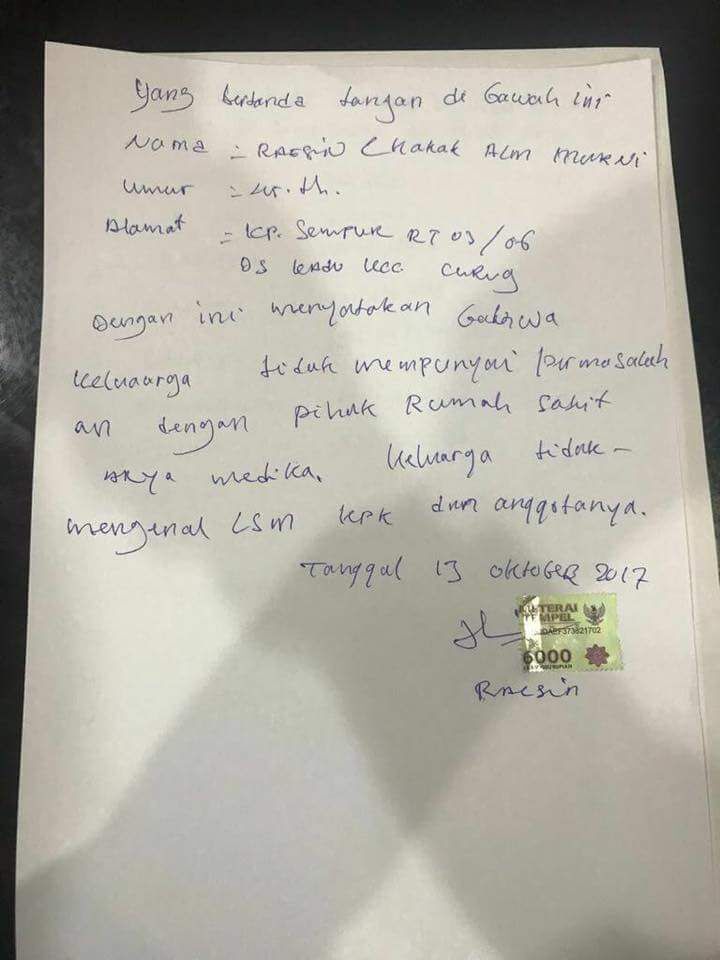 Yang bertanda tangan di bawah ini
Nama = RAESIN (Kakak ALM MURNI
Umur = th.
Alamat = KP. SEMPUR RT 03/06
DS KADU KEC. CURUG
Dengan ini menyatakan bahwa
Keluaurga tidak mempunyai permasalah
an dengan pihak Rumah Sakit
ARYA medika. Keluarga tidak-
mengenal LSM KPK dan anggotanya.
Tanggal 13 OKTOBER 2017
METERAI
TEMPEL
6000
ENAM RIBU RUPIAH
RAESIN